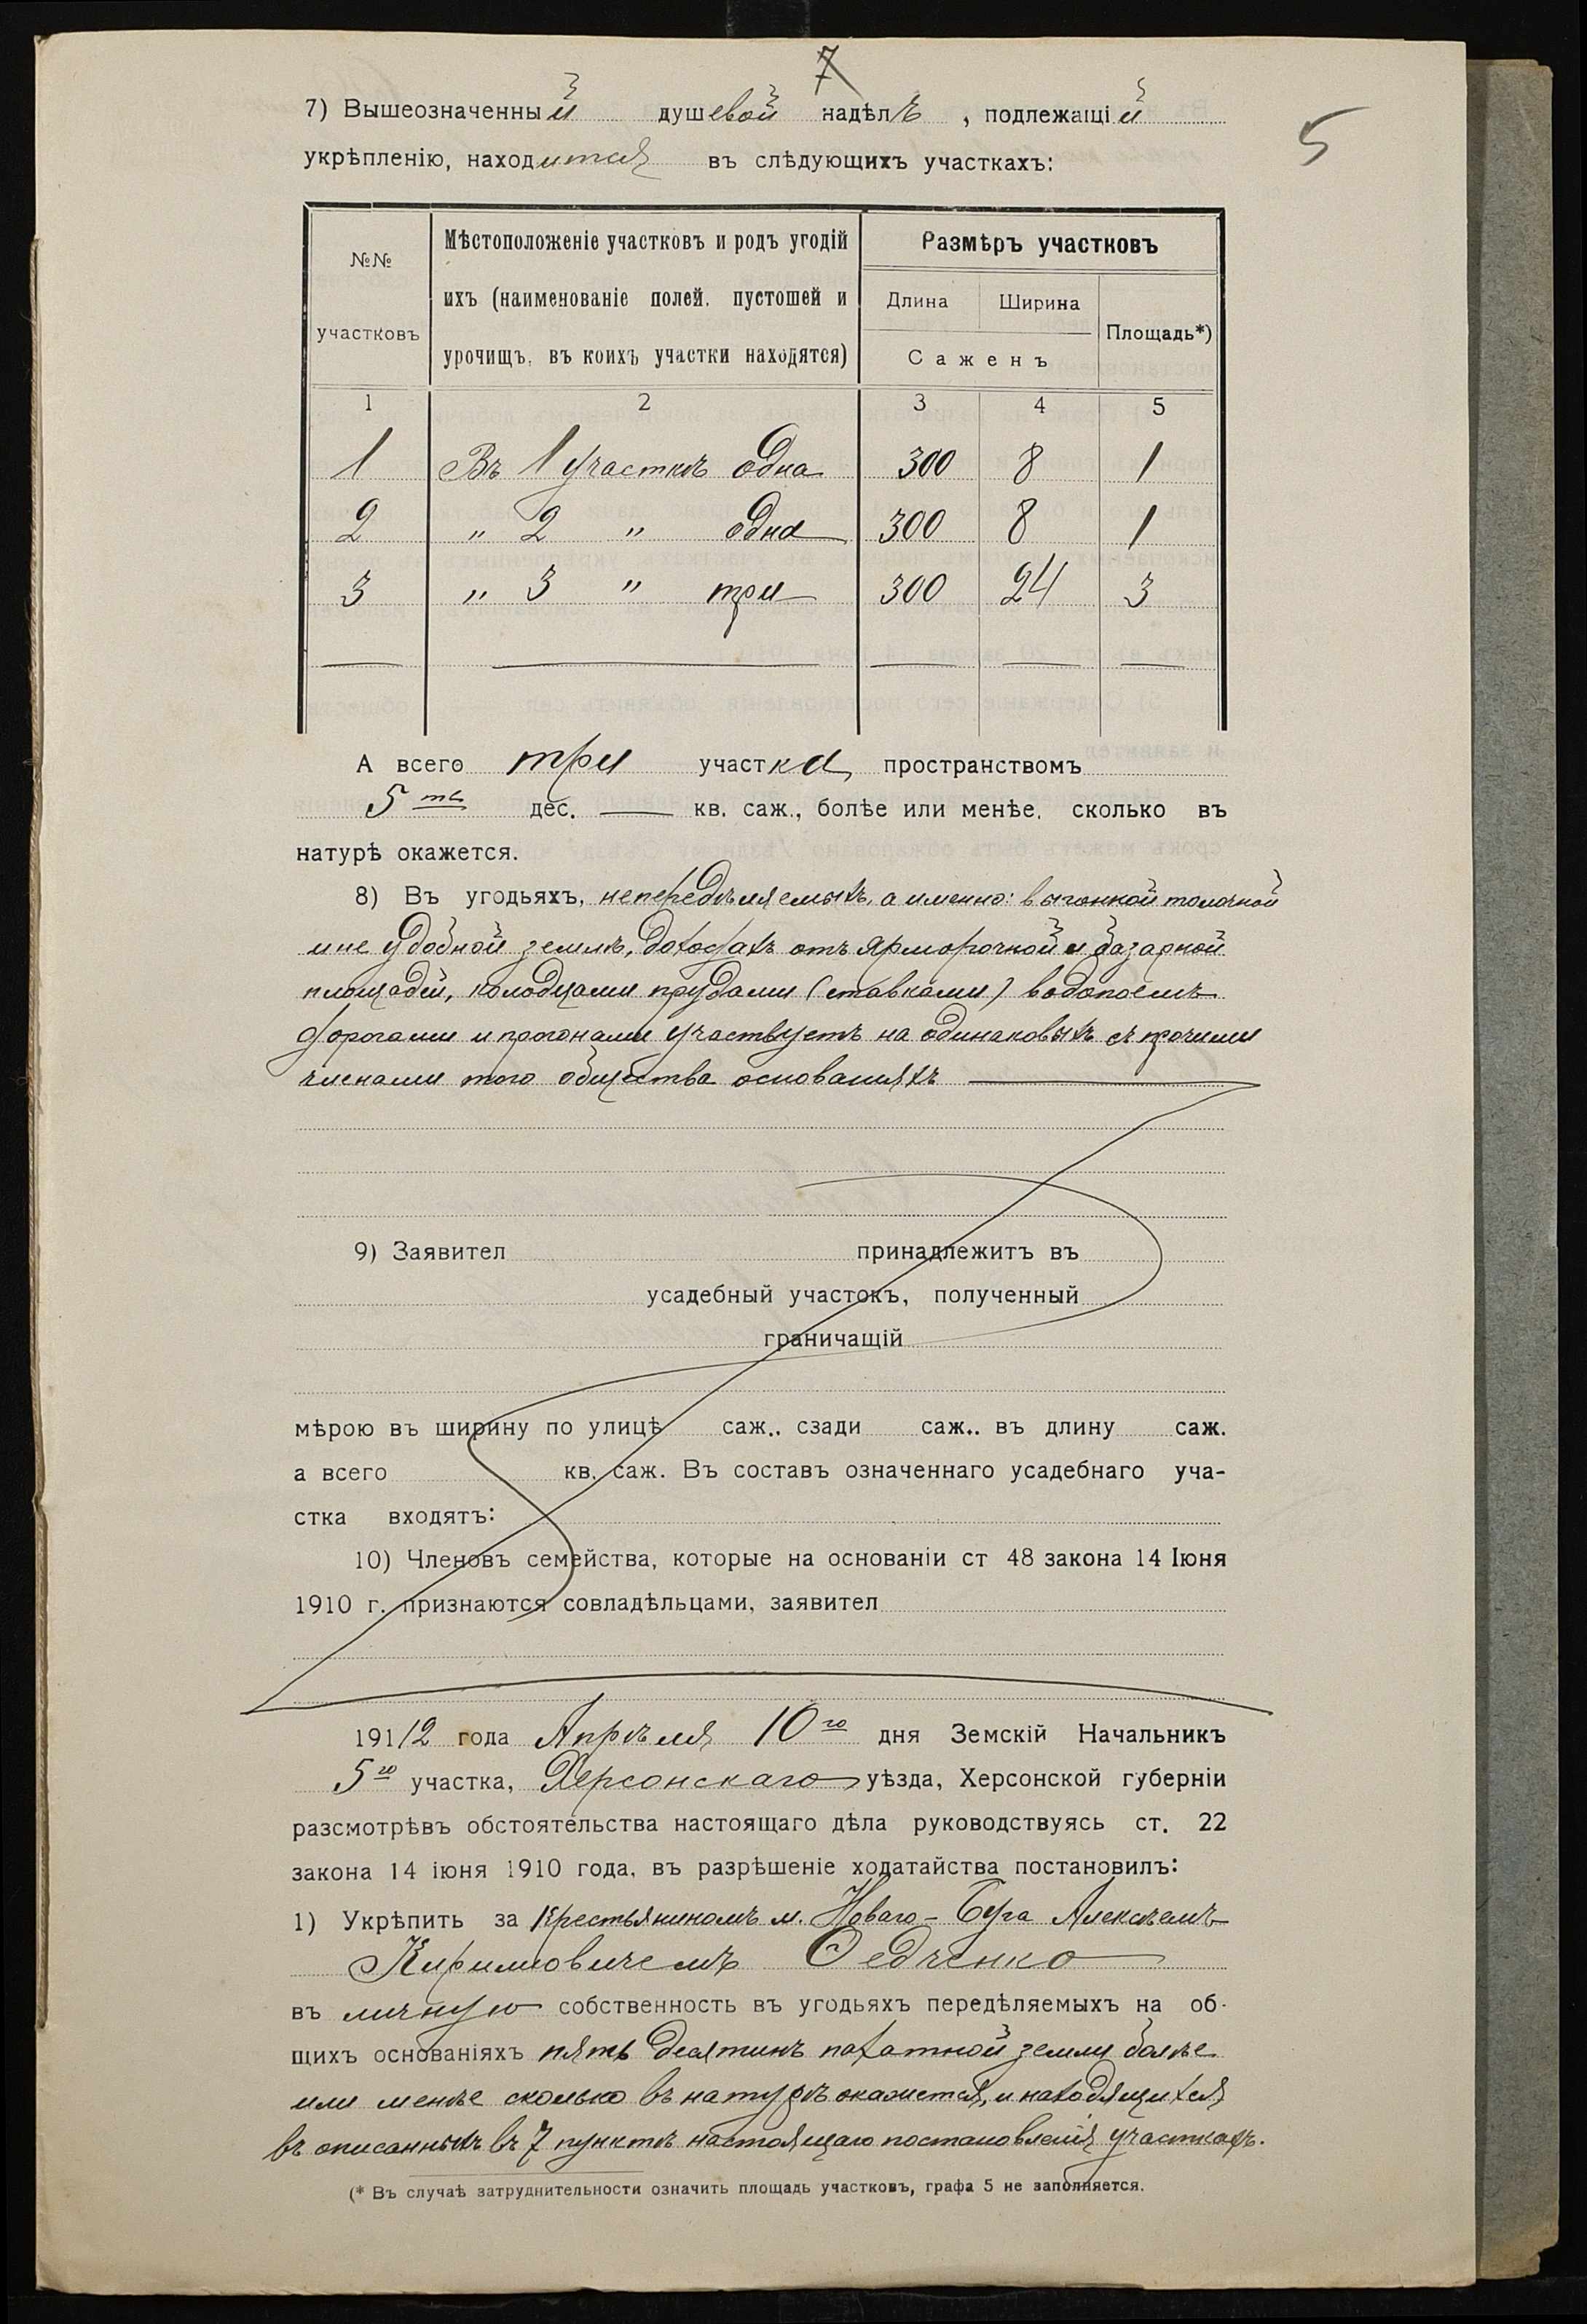 7
5
7) Вышеозначенный душевой надѣлъ, подлежащій
укрѣпленію, находится въ слѣдующихъ участкахъ:
№№ участковъ
Мѣстоположеніе участковъ и родъ угодій
ихъ (наименованіе полей, пустошей и
урочищъ, въ коихъ участки находятся)
Размѣръ участковъ
Длина Ширина Площадь*)
Саженъ
1 2 3 4 5
1 Въ 1 участкѣ одна 300 8 1
2 " 2 " одна 300 8 1
3 " 3 " три 300 24 3
А всего три участка, пространствомъ
5ть дес. — кв. саж., болѣе или менѣе, сколько въ
натурѣ окажется.
8) Въ угодьяхъ, непередѣляемыхъ, а именно: выгонной толочной
и не удобной землѣ, доходахъ отъ ярморочной и базарной
площадей, колодцами прудами (ставками) водопоемъ
дорогами и прогонами участвуетъ на одинаковыхъ съ прочими
членами того общества основаніяхъ —
9) Заявител принадлежитъ въ
усадебный участокъ, полученный
граничащій
мѣрою въ ширину по улицѣ саж., сзади саж., въ длину саж.
а всего кв. саж. Въ составъ означеннаго усадебнаго уча-
стка входятъ:
10) Членовъ семейства, которые на основаніи ст 48 закона 14 Іюня
1910 г. признаются совладѣльцами, заявител
19112 года Апрѣля 10го дня Земскій Начальникъ
5го участка, Херсонскаго уѣзда, Херсонской губерніи
разсмотрѣвъ обстоятельства настоящаго дѣла руководствуясь ст. 22
закона 14 іюня 1910 года, въ разрѣшеніе ходатайства постановилъ:
1) Укрѣпить за Крестьяниномъ м. Новаго-Буга Алексѣемъ
Кирилловичемъ Федченко
въ личную собственность въ угодьяхъ передѣляемыхъ на об-
щихъ основаніяхъ пять десятинъ пахатной земли болѣе
или менѣе сколько въ натурѣ окажется, и находящихся
въ описанныхъ въ 7 пунктѣ настоящаго постановленія участкахъ.
(* Въ случаѣ затруднительности означить площадь участковъ, графа 5 не заполняется.